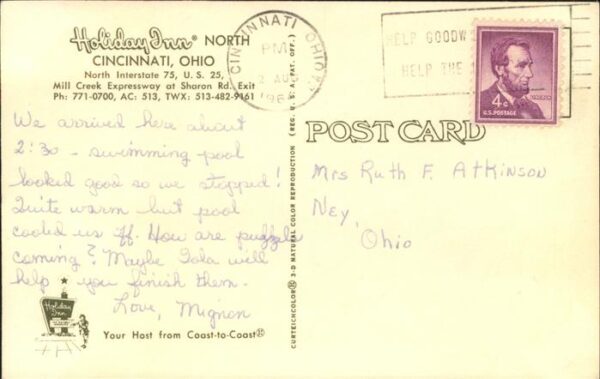 Holiday Inn® NORTH
CINCINNATI, OHIO
North Interstate 75, U. S. 25,
Mill Creek Expressway at Sharon Rd. Exit
Ph: 771-0700, AC: 513, TWX: 513-482-9161
We arrived here about
2:30 - swimming pool
looked good so we stopped!
Quite warm but pool
cooled us off. How are puzzles
coming? Maybe Iola will
help you finish them.
Love, Mignon
Holiday Inn
Your Host from Coast-to-Coast
CURTEICHCOLOR® 3-D NATURAL COLOR REPRODUCTION (REG. U. S. A. PAT. OFF.)
CINCINNATI OHIO
PM
2 AUG
196
HELP GOODW
HELP THE
4¢
U.S. POSTAGE
POST CARD
Mrs Ruth F. Atkinson
Ney,
Ohio